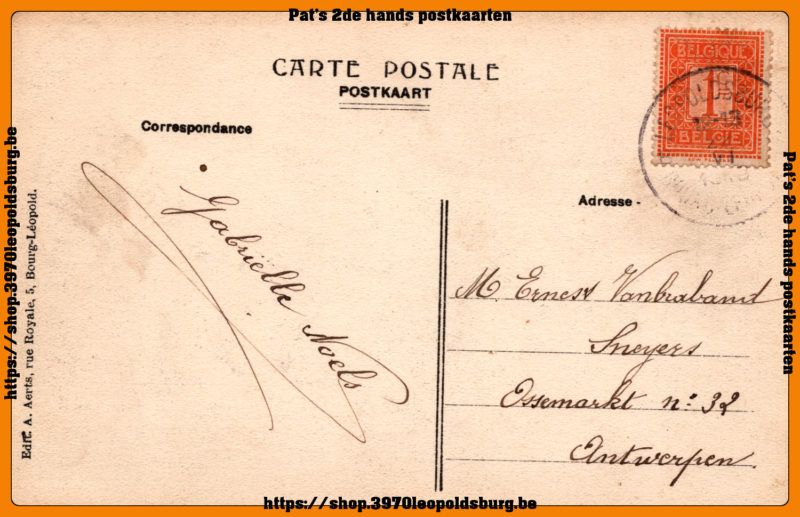 Pat's 2de hands postkaarten
CARTE POSTALE
POSTKAART
BELGIQUE
1
BELGIË
Correspondance
Adresse -
Gabriëlle Noels
M. Ernest Vanbrabant
Sneyers
Ossemarkt n: 32
Antwerpen.
Edit. A. Aerts, rue Royale, 5, Bourg-Léopold.
https://shop.3970leopoldsburg.be
Pat's 2de hands postkaarten
https://shop.3970leopoldsburg.be